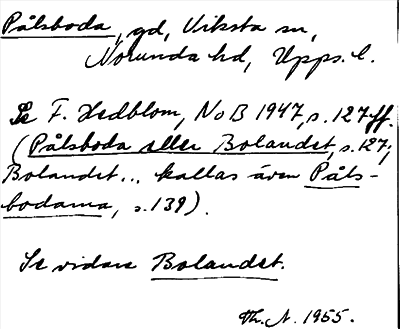 Pålsboda, gd, Viksta sn,
Norunda hd, Upps. l.
Se F. Hedblom, NoB 1947, s. 127 ff.
(Pålsboda eller Bolandet, s. 127;
Bolandet... kallas även Påls-
bodarna, s. 139).
Se vidare Bolandet.
Th. A. 1955.